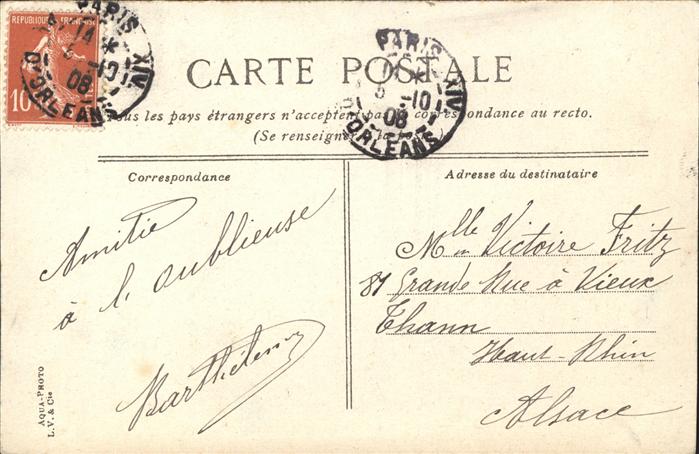 RÉPUBLIQUE FRANÇAISE
10
PARIS XIV
14
10
08
D'ORLEANS
PARIS XIV
10
08
D'ORLEANS
CARTE POSTALE
les pays étrangers n'acceptent pas correspondance au recto.
(Se renseigner à la
Correspondance
Amitié
à l'oublieuse
Barthélemy
Adresse du destinataire
Mlle Victoire Fritz
81 Grande Rue à Vieux
Thann
Haut-Rhin
Alsace
AQUA-PHOTO
L.V. & Cie